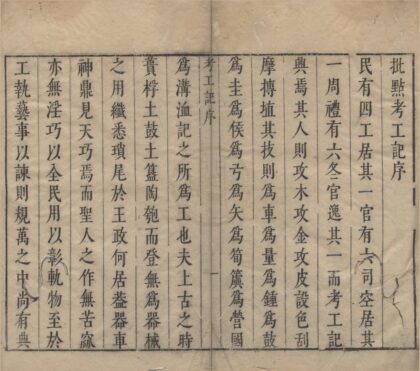 批點考工記序
民有四工居其一官有六司空居其
一周禮有六冬官逸其一而考工記
與焉其人則攻木攻金攻皮設色刮
摩摶埴其技則爲車爲量爲鍾爲鼓
爲圭爲侯爲弓爲矢爲筍簴爲營國
考工記序
一
爲溝洫記之所爲工也夫上古之時
蕢桴土鼓土簋陶匏而登無爲器械
之用纖悉瑣尾於王政何居葢器車
神鼎見天巧焉而聖人之作無苦窳
亦無淫巧以全民用以彰軌物至於
工執藝事以諫則規萬之中尚有典